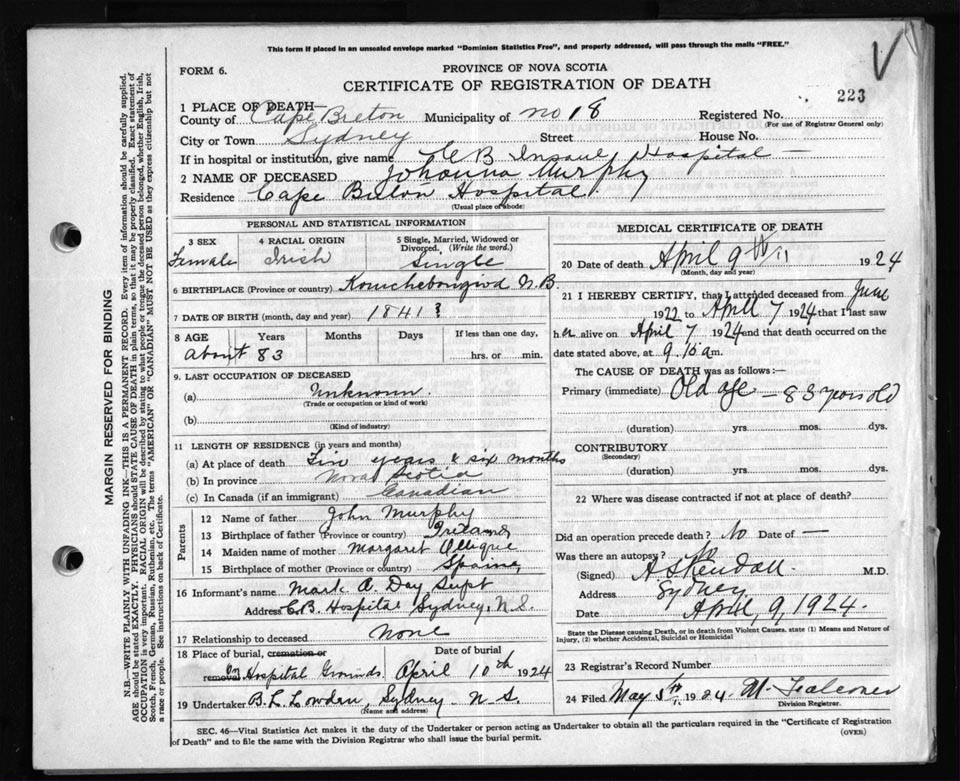 This form if placed in an unsealed envelope marked "Dominion Statistics Free", and properly addressed, will pass through the mails "FREE."
V
FORM 6.
PROVINCE OF NOVA SCOTIA
CERTIFICATE OF REGISTRATION OF DEATH
223
1 PLACE OF DEATH—
County of Cape Breton Municipality of No 18 Registered No.
(For use of Registrar General only)
City or Town Sydney Street House No.
If in hospital or institution, give name C B Insane Hospital —
2 NAME OF DECEASED Johanna Murphy
Residence Cape Breton Hospital
(Usual place of abode)
PERSONAL AND STATISTICAL INFORMATION
3 SEX Female
4 RACIAL ORIGIN Irish
5 Single, Married, Widowed or Divorced. (Write the word.) Single
6 BIRTHPLACE (Province or country) N.B.
7 DATE OF BIRTH (month, day and year) 1841 ?
8 AGE Years Months Days If less than one day,
About 83 hrs. or min.
9. LAST OCCUPATION OF DECEASED
(a) Unknown.
(Trade or occupation or kind of work)
(b)
(Kind of industry)
11 LENGTH OF RESIDENCE (in years and months)
(a) At place of death years & six months
(b) In province Nova Scotia
(c) In Canada (if an immigrant) Canadian
Parents
12 Name of father John Murphy
13 Birthplace of father (Province or country) Ireland
14 Maiden name of mother Margaret
15 Birthplace of mother (Province or country) Spain
16 Informant's name Mark A. Day Supt
Address C.B. Hospital Sydney, N.S.
17 Relationship to deceased None
18 Place of burial, cremation or removal Date of burial
On Hospital Grounds April 10th 1924
19 Undertaker B. L. Lowden, Sydney N S.
(Name and address)
MEDICAL CERTIFICATE OF DEATH
20 Date of death April 9th 1924
(Month, day and year)
21 I HEREBY CERTIFY, that I attended deceased from June
1922 to April 7 1924 that I last saw
her alive on April 7 1924 and that death occurred on
date stated above, at 9.15 am.
The CAUSE OF DEATH was as follows:—
Primary (immediate) Old age — 83 years old
(duration) yrs. mos. dys.
CONTRIBUTORY
(Secondary)
(duration) yrs. mos. dys.
22 Where was disease contracted if not at place of death?
Did an operation precede death? No Date of —
Was there an autopsy? No
(Signed) A S Kendall. M.D.
Address Sydney
Date April, 9, 1924.
State the Disease causing Death, or in death from Violent Causes, state (1) Means and Nature of Injury, (2) whether Accidental, Suicidal or Homicidal
23 Registrar's Record Number
24 Filed May 5th 1924 M. Falconer
Division Registrar.
SEC. 46—Vital Statistics Act makes it the duty of the Undertaker or person acting as Undertaker to obtain all the particulars required in the "Certificate of Registration
of Death" and to file the same with the Division Registrar who shall issue the burial permit.
(OVER)
MARGIN RESERVED FOR BINDING
N.B.—WRITE PLAINLY WITH UNFADING INK—THIS IS A PERMANENT RECORD. Every item of information should be carefully supplied.
AGE should be stated EXACTLY. PHYSICIANS should STATE CAUSE OF DEATH in plain terms, so that it may be properly classified. Exact statement of
OCCUPATION is very important. RACIAL ORIGIN will be described by stating to what people or tongue the deceased person belonged, whether English, Irish,
Scotch, French, German, Russian, Ruthenian, etc. The terms "AMERICAN" OR "CANADIAN" MUST NOT BE USED as they express citizenship but not
a race or people. See instructions on back of Certificate.